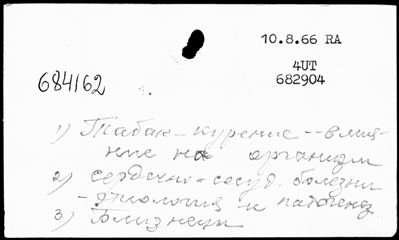 10.8.66 RA
4UT
684162
682904
1) Табак-курение -- влия-
ние на организм
2) сердечно-сосуд. болезни
- этиология и патогенез
3) Близнецы